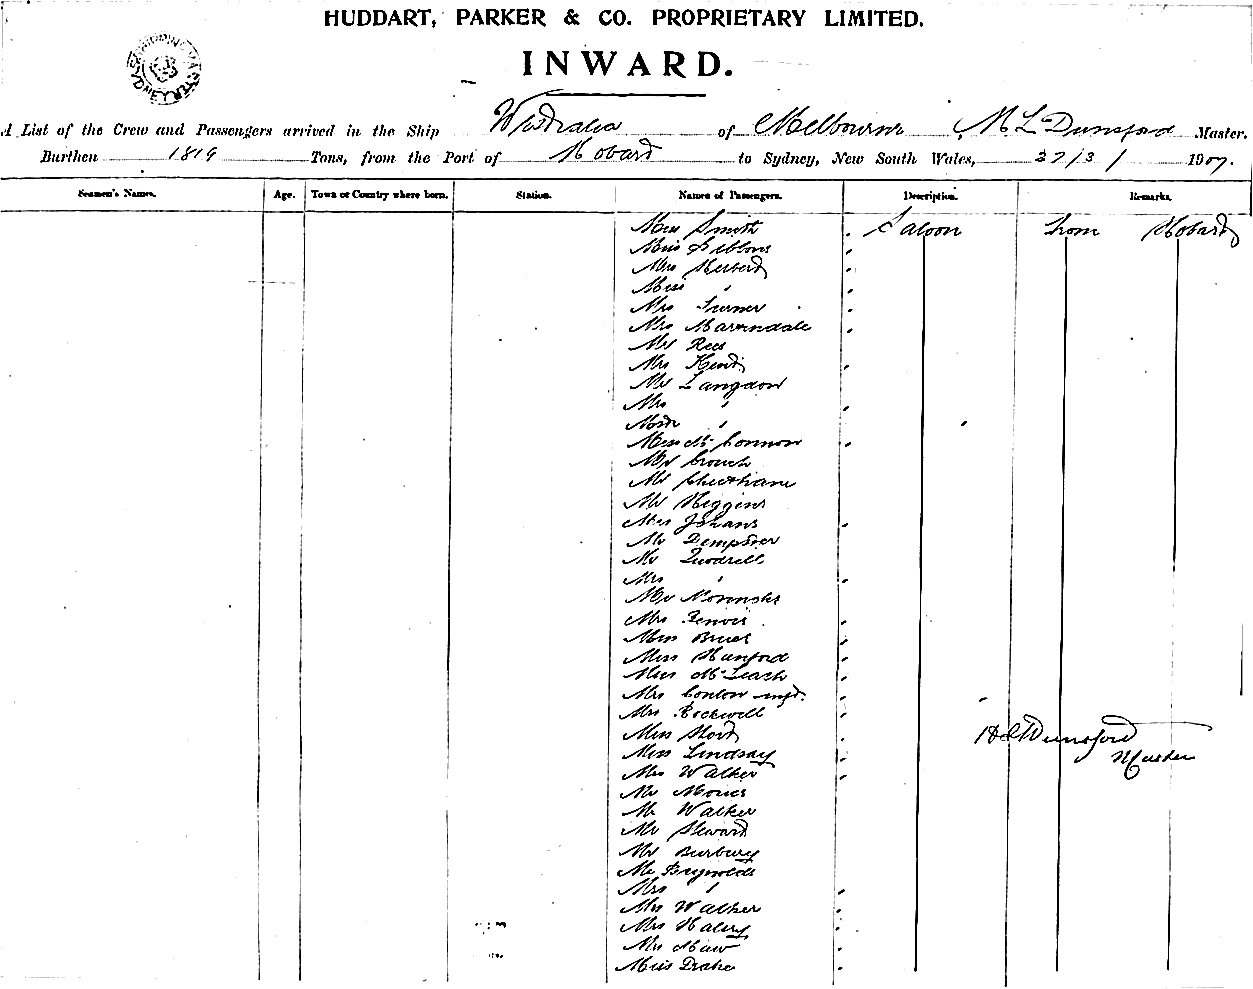 HUDDART, PARKER & CO. PROPRIETARY LIMITED.
INWARD.
A List of the Crew and Passengers arrived in the Ship Westralia of Melbourne, M L Dunsford Master.
Burthen 1819 Tons, from the Port of Hobart to Sydney, New South Wales, 27/3/ 1907.
Seamen's Names. Age. Town or Country where born. Station. Names of Passengers. Description. Remarks.
Miss Smith Saloon from Hobart
Miss Gibbons "
Mrs Herbert "
Miss " "
Mrs Turner "
Mrs Marrindale "
Mr Rees
Mrs "
Mr Langdon
Mrs " "
"
Miss Mc Connon "
Mr Crouch
Mr Cheetham
Mr Higgins
Miss Johans "
Mr Dempster
Mr
Mrs " "
Mr
Mrs "
Miss "
Miss Hanford "
Miss McLeash "
Mrs Conlon "
Mrs Rockwell "
Miss "
Miss Lindsay "
Mrs Walker "
M L Dunsford
Master
Mr
Mr Walker
Mr Steward
Mr Burbury
Mr Reynolds
Mrs " "
Mrs Walker "
Mrs Haley "
Mrs Maw "
Miss Drake "